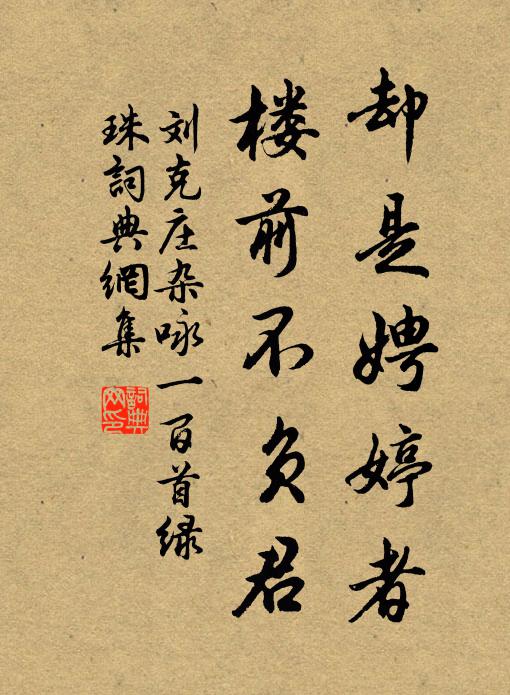 却是娉婷者
楼前不负君
刘克庄杂咏一百首绿
珠詞典網集
詞典
网印